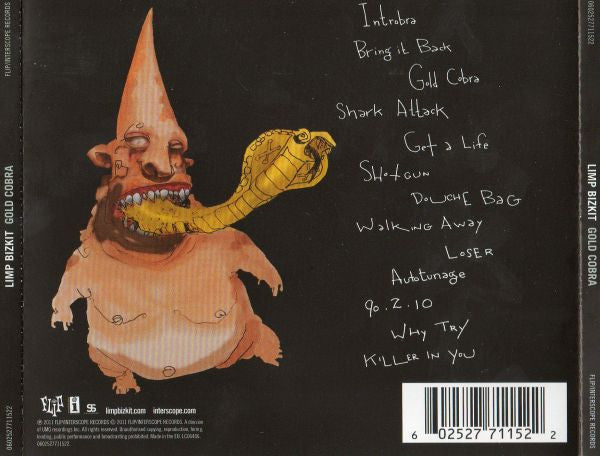 Introbra
Bring it Back
Gold Cobra
Shark Attack
Get a Life
Shotgun
Douche Bag
Walking Away
Loser
Autotunage
90.2.10
Why Try
Killer in You
FLIP/INTERSCOPE RECORDS
LIMP BIZKIT GOLD COBRA
0602527711522
0602527711522
LIMP BIZKIT GOLD COBRA
FLIP/INTERSCOPE RECORDS
FLIP
limpbizkit.com interscope.com
℗ 2011 FLIP/INTERSCOPE RECORDS © 2011 FLIP/INTERSCOPE RECORDS. A division
of UMG recordings Inc. All rights reserved. Unauthorised copying, reproduction, hiring,
lending, public performance and broadcasting prohibited. Made in the EU. LC06406.
0602527711522.
6 02527 71152 2